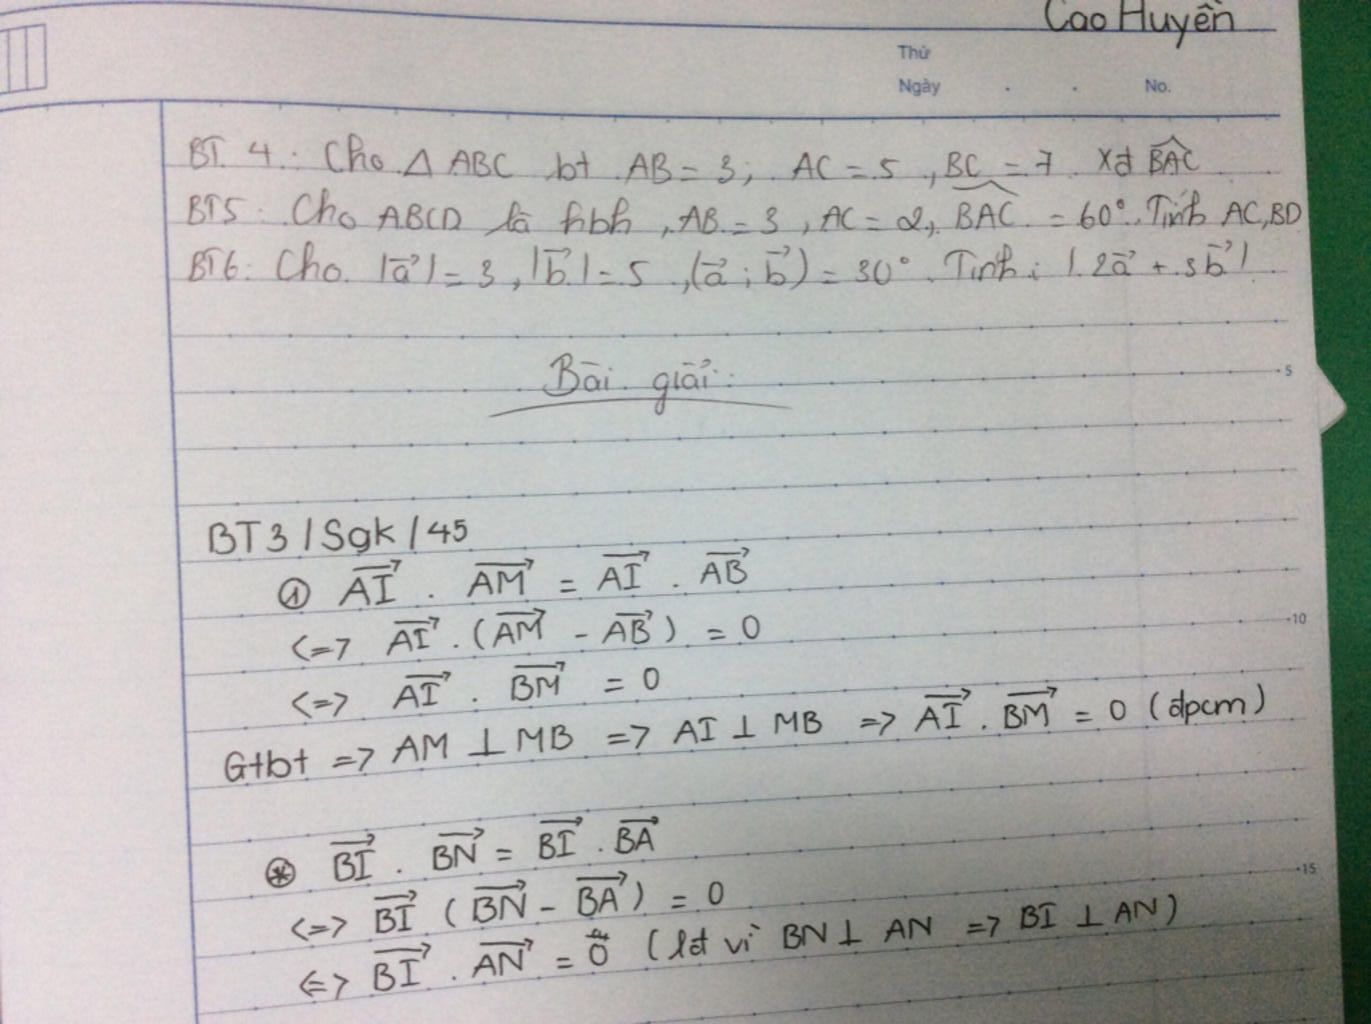 Cao Huyền
Thứ
Ngày . . No.
BT 4: Cho △ ABC bt AB = 3; AC = 5, BC = 7. Xđ \widehat{BAC}
BT5: Cho ABCD là hbh, AB = 3, AC = 2, \widehat{BAC} = 60°. Tính AC, BD
BT6: Cho |\vec{a}| = 3, |\vec{b}| = 5, (\vec{a}; \vec{b}) = 30°. Tính: |2\vec{a} + 3\vec{b}|
Bài giải:
5
BT3 / Sgk / 45
① \vec{AI} . \vec{AM} = \vec{AI} . \vec{AB}
<=> \vec{AI} . (\vec{AM} - \vec{AB}) = 0
10
<=> \vec{AI} . \vec{BM} = 0
Gtbt => AM ⊥ MB => AI ⊥ MB => \vec{AI} . \vec{BM} = 0 (đpcm)
⊛ \vec{BI} . \vec{BN} = \vec{BI} . \vec{BA}
15
<=> \vec{BI} (\vec{BN} - \vec{BA}) = 0
<=> \vec{BI} . \vec{AN} = 0 (lđ vì BN ⊥ AN => BI ⊥ AN)